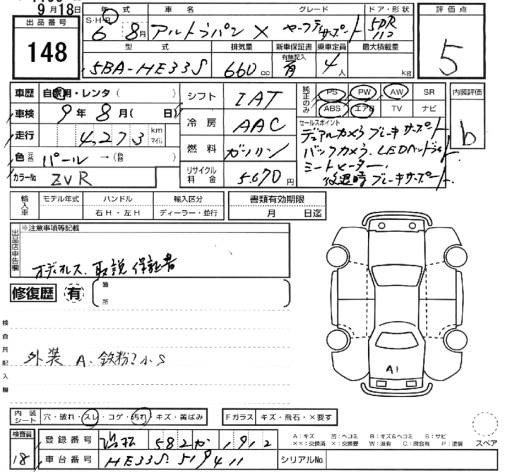 9月18日
出品番号
148
S・H・R 年 車名 グレード ドア・形状 評価点
6 8月 アルトラパン X セーフティサポート 5DR
5
型式 排気量 新車保証書 乗車定員 最大積載量
5BA-HE33S 660cc 有無記入 有 4人 kg
車歴 自家用・レンタ( )
シフト IAT
純正のみ PS PW AW SR
ABS エアB TV ナビ
内装評価
b
車検 9年8月( 日)
冷房 AAC
セールスポイント
デュアルカメラブレーキサポート
バックカメラ、LEDヘッドライト
シートヒーター
後退時ブレーキサポート
走行 4,273 km マイル
燃料 ガソリン
色 パール→(色)
リサイクル料金 5,670円
カラーNo ZVR
輸入車 モデル年式 ハンドル 輸入区分 書類有効期限
右H・左H ディーラー・並行 月 日迄
出品店申告欄
※注意事項等記載
オーディオレス、取説 保証書
修復歴 有 箇所
検査員記入欄
外装 A、鉄粉 小S
A1
内装シート 穴・破れ・スレ・コゲ・汚れ・キズ・黄ばみ Fガラス キズ・飛石・×要す
スペア
検査員 18
登録番号 582か1912
A:キズ
車台番号 HE33S-519411
シリアルNo